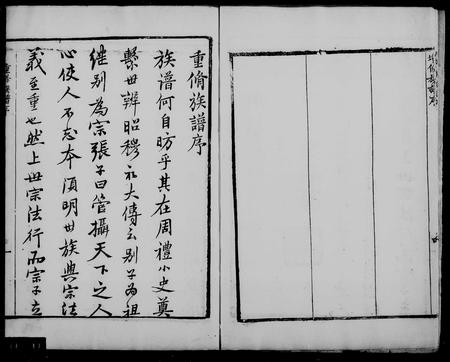 重脩族譜序
族譜何自昉乎其在周禮小史奠
繫世辨昭穆礼大傳云别子為祖
继别為宗張子曰管攝天下之人
心使人不忘本須明世族與宗法
義至重也然上世宗法行而宗子立